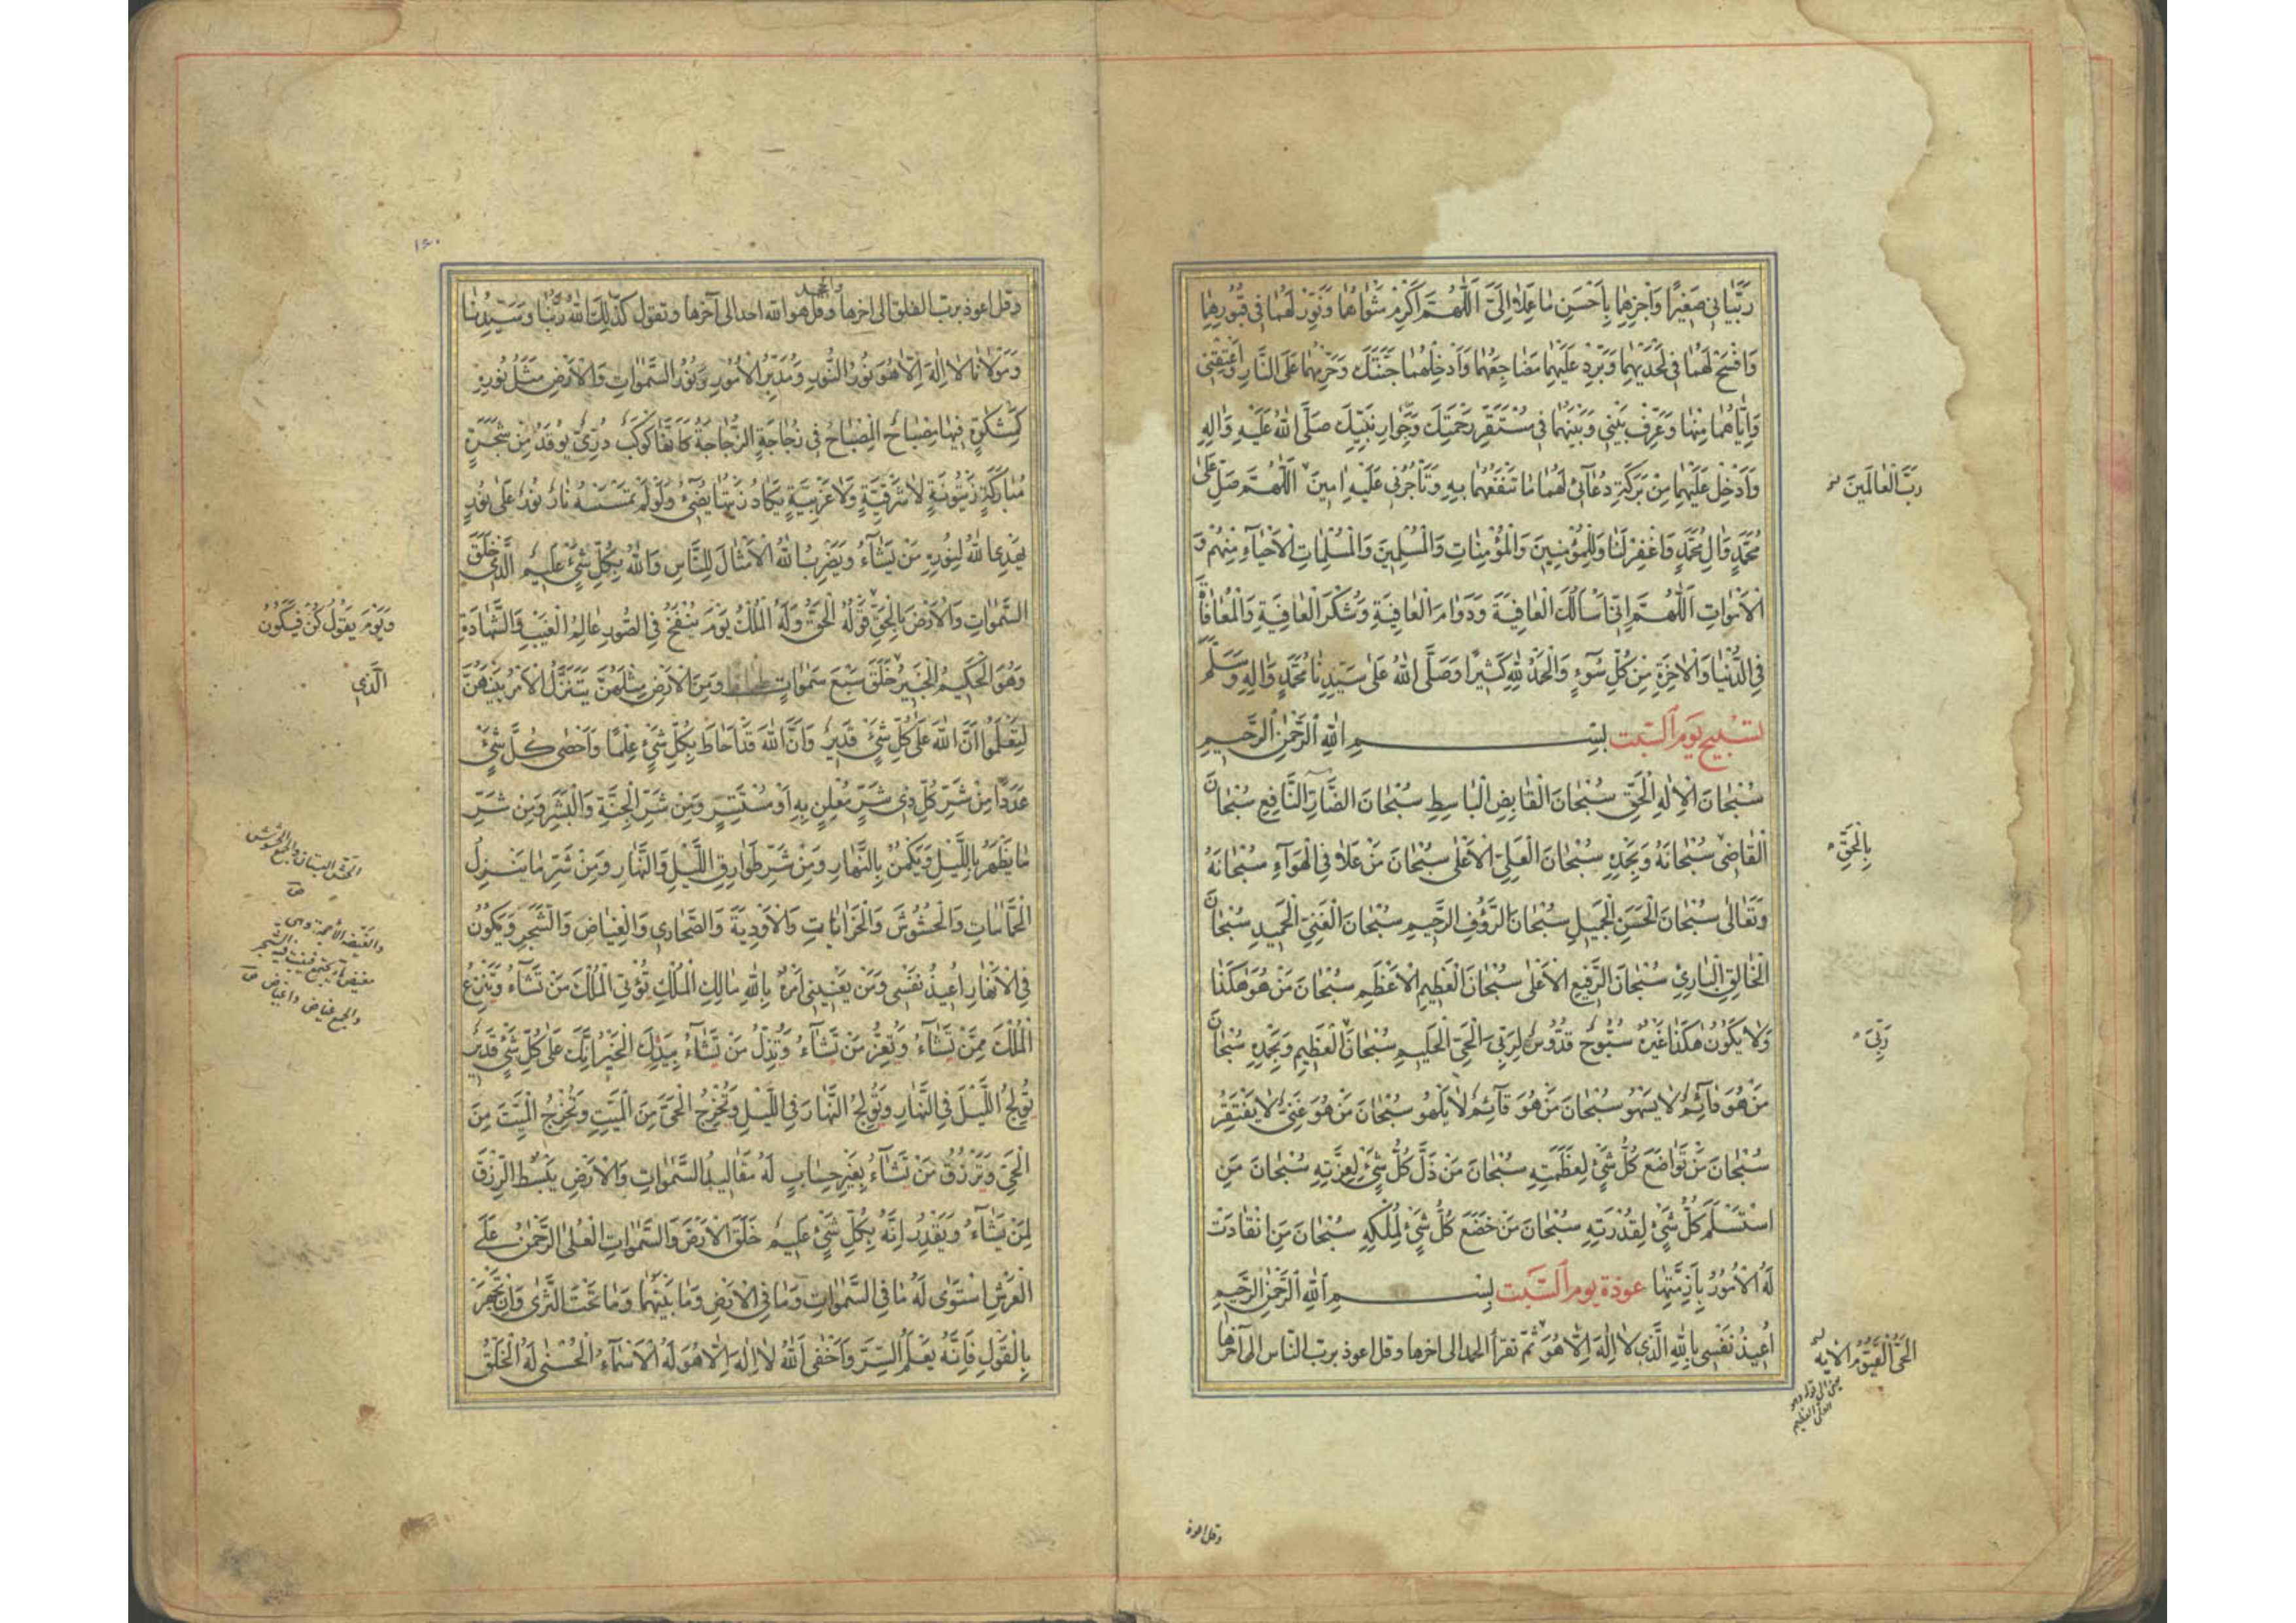 رَبَّيَانِي صَغِيرًا وَاجْزِهِمَا بِاَحْسَنِ مَا عَمِلَا اِلَيَّ اَللّٰهُمَّ اَكْرِمْ مَثْوَاهُمَا وَنَوِّرْ لَهُمَا فِي قُبُورِهِمَا
وَافْسَحْ لَهُمَا فِي لَحْدَيْهِمَا وَبَرِّدْ عَلَيْهِمَا مَضَاجِعَهُمَا وَاَدْخِلْهُمَا جَنَّتَكَ وَحَرِّمْهُمَا عَلَى النَّارِ وَاَعْتِقْنِي
وَاِيَّاهُمَا مِنْهَا وَعَرِّفْ بَيْنِي وَبَيْنَهُمَا فِي مُسْتَقَرِّ رَحْمَتِكَ وَجِوَارِ نَبِيِّكَ صَلَّى اللّٰهُ عَلَيْهِ وَاٰلِهِ
وَاَدْخِلْ عَلَيْهِمَا مِنْ بَرَكَةِ دُعَآئِي لَهُمَا مَا تَنْفَعُهُمَا بِهِ وَتَأْجُرُنِي عَلَيْهِ اٰمِينَ اَللّٰهُمَّ صَلِّ عَلٰى
رَبَّ الْعَالَمِينَ
مُحَمَّدٍ وَاٰلِ مُحَمَّدٍ وَاغْفِرْ لَنَا وَلِلْمُؤْمِنِينَ وَالْمُؤْمِنَاتِ وَالْمُسْلِمِينَ وَالْمُسْلِمَاتِ الْاَحْيَآءِ مِنْهُمْ وَ
الْاَمْوَاتِ اَللّٰهُمَّ اِنِّي اَسْاَلُكَ الْعَافِيَةَ وَدَوَامَ الْعَافِيَةِ وَشُكْرَ الْعَافِيَةِ وَالْمُعَافَاةَ
فِي الدُّنْيَا وَالْاٰخِرَةِ مِنْ كُلِّ سُوٓءٍ وَالْحَمْدُ لِلّٰهِ كَثِيرًا وَصَلَّى اللّٰهُ عَلٰى سَيِّدِنَا مُحَمَّدٍ وَاٰلِهِ وَسَلَّمَ
تَسْبِيحُ يَوْمِ السَّبْتِ بِسْمِ اللّٰهِ الرَّحْمٰنِ الرَّحِيمِ
سُبْحَانَ الْاِلٰهِ الْحَقِّ سُبْحَانَ الْقَابِضِ الْبَاسِطِ سُبْحَانَ الضَّآرِّ النَّافِعِ سُبْحَانَ
الْقَاضِي سُبْحَانَهُ وَبِحَمْدِهِ سُبْحَانَ الْعَلِيِّ الْاَعْلٰى سُبْحَانَ مَنْ عَلَا فِي الْهَوَآءِ سُبْحَانَهُ
بِالْحَقِّ
وَتَعَالٰى سُبْحَانَ الْحَسَنِ الْجَمِيلِ سُبْحَانَ الرَّؤُفِ الرَّحِيمِ سُبْحَانَ الْغَنِيِّ الْحَمِيدِ سُبْحَانَ
الْخَالِقِ الْبَارِئِ سُبْحَانَ الرَّفِيعِ الْاَعْلٰى سُبْحَانَ الْعَظِيمِ الْاَعْظَمِ سُبْحَانَ مَنْ هُوَ هٰكَذَا
وَلَا يَكُونُ هٰكَذَا غَيْرُهُ سُبُّوحٌ قُدُّوسٌ لِرَبِّيَ الْحَيِّ الْحَلِيمِ سُبْحَانَ الْعَظِيمِ وَبِحَمْدِهِ سُبْحَانَ
رَبِّيَ
مَنْ هُوَ دَآئِمٌ لَا يَسْهُو سُبْحَانَ مَنْ هُوَ قَآئِمٌ لَا يَلْهُو سُبْحَانَ مَنْ هُوَ غَنِيٌّ لَا يَفْتَقِرُ
سُبْحَانَ مَنْ تَوَاضَعَ كُلُّ شَيْءٍ لِعَظَمَتِهِ سُبْحَانَ مَنْ ذَلَّ كُلُّ شَيْءٍ لِعِزَّتِهِ سُبْحَانَ مَنِ
اسْتَسْلَمَ كُلُّ شَيْءٍ لِقُدْرَتِهِ سُبْحَانَ مَنْ خَضَعَ كُلُّ شَيْءٍ لِمُلْكِهِ سُبْحَانَ مَنِ انْقَادَتْ
لَهُ الْاُمُورُ بِاَزِمَّتِهَا عوذة يوم السَّبت بِسْمِ اللّٰهِ الرَّحْمٰنِ الرَّحِيمِ
اُعِيذُ نَفْسِي بِاللّٰهِ الَّذِي لَا اِلٰهَ اِلَّا هُوَ ثمّ تقرأ الحمد الى اخرها وقل اعوذ بربّ النّاس الى آخرها
الْحَيُّ الْقَيُّومُ الاية
وقل اعوذ
١٤٠
وقل اعوذ بربّ الفلق الى اخرها وقل هو الله احد الى آخرها وتقول كَذٰلِكَ اللّٰهُ رَبُّنَا وَسَيِّدُنَا
وَمَوْلَانَا لَا اِلٰهَ اِلَّا هُوَ نُورُ النُّورِ وَمُدَبِّرُ الْاُمُورِ وَنُورُ السَّمٰوَاتِ وَالْاَرْضِ مَثَلُ نُورِهِ
كَمِشْكٰوةٍ فِيهَا مِصْبَاحٌ الْمِصْبَاحُ فِي زُجَاجَةٍ الزُّجَاجَةُ كَاَنَّهَا كَوْكَبٌ دُرِّيٌّ يُوقَدُ مِنْ شَجَرَةٍ
مُبَارَكَةٍ زَيْتُونَةٍ لَا شَرْقِيَّةٍ وَلَا غَرْبِيَّةٍ يَكَادُ زَيْتُهَا يُضِيٓءُ وَلَوْ لَمْ تَمْسَسْهُ نَارٌ نُورٌ عَلٰى نُورٍ
يَهْدِي اللّٰهُ لِنُورِهِ مَنْ يَشَآءُ وَيَضْرِبُ اللّٰهُ الْاَمْثَالَ لِلنَّاسِ وَاللّٰهُ بِكُلِّ شَيْءٍ عَلِيمٌ الَّذِي خَلَقَ
السَّمٰوَاتِ وَالْاَرْضَ بِالْحَقِّ قَوْلُهُ الْحَقُّ وَلَهُ الْمُلْكُ يَوْمَ يُنْفَخُ فِي الصُّورِ عَالِمُ الْغَيْبِ وَالشَّهَادَةِ
وَيَوْمَ يَقُولُ كُنْ فَيَكُونُ
وَهُوَ الْحَكِيمُ الْخَبِيرُ خَلَقَ سَبْعَ سَمٰوَاتٍ طِبَاقًا وَمِنَ الْاَرْضِ مِثْلَهُنَّ يَتَنَزَّلُ الْاَمْرُ بَيْنَهُنَّ
الَّذِي
لِتَعْلَمُوا اَنَّ اللّٰهَ عَلٰى كُلِّ شَيْءٍ قَدِيرٌ وَاَنَّ اللّٰهَ قَدْ اَحَاطَ بِكُلِّ شَيْءٍ عِلْمًا وَاَحْصٰى كُلَّ شَيْءٍ
عَدَدًا مِنْ شَرِّ كُلِّ ذِي شَرٍّ مُعْلِنٍ بِهِ اَوْ مُسْتَتِرٍ وَمِنْ شَرِّ الْجِنَّةِ وَالْبَشَرِ وَمِنْ شَرِّ
مَا يَظْهَرُ بِاللَّيْلِ وَيَكْمُنُ بِالنَّهَارِ وَمِنْ شَرِّ طَوَارِقِ اللَّيْلِ وَالنَّهَارِ وَمِنْ شَرِّ مَا يَنْزِلُ
الْحَمَّامَاتِ وَالْحُشُوشَ وَالْخَرَابَاتِ وَالْاَوْدِيَةَ وَالصَّحَارِي وَالْغِيَاضَ وَالشَّجَرَ وَيَكُونُ
فِي الْاَنْهَارِ اُعِيذُ نَفْسِي وَمَنْ يَعْنِينِي اَمْرُهُ بِاللّٰهِ مَالِكِ الْمُلْكِ تُؤْتِي الْمُلْكَ مَنْ تَشَآءُ وَتَنْزِعُ
الْمُلْكَ مِمَّنْ تَشَآءُ وَتُعِزُّ مَنْ تَشَآءُ وَتُذِلُّ مَنْ تَشَآءُ بِيَدِكَ الْخَيْرُ اِنَّكَ عَلٰى كُلِّ شَيْءٍ قَدِيرٌ
تُولِجُ اللَّيْلَ فِي النَّهَارِ وَتُولِجُ النَّهَارَ فِي اللَّيْلِ وَتُخْرِجُ الْحَيَّ مِنَ الْمَيِّتِ وَتُخْرِجُ الْمَيِّتَ مِنَ
الْحَيِّ وَتَرْزُقُ مَنْ تَشَآءُ بِغَيْرِ حِسَابٍ لَهُ مَقَالِيدُ السَّمٰوَاتِ وَالْاَرْضِ يَبْسُطُ الرِّزْقَ
لِمَنْ يَشَآءُ وَيَقْدِرُ اِنَّهُ بِكُلِّ شَيْءٍ عَلِيمٌ خَلَقَ الْاَرْضَ وَالسَّمٰوَاتِ الْعُلٰى الرَّحْمٰنُ عَلَى
الْعَرْشِ اسْتَوٰى لَهُ مَا فِي السَّمٰوَاتِ وَمَا فِي الْاَرْضِ وَمَا بَيْنَهُمَا وَمَا تَحْتَ الثَّرٰى وَاِنْ تَجْهَرْ
بِالْقَوْلِ فَاِنَّهُ يَعْلَمُ السِّرَّ وَاَخْفٰى اَللّٰهُ لَا اِلٰهَ اِلَّا هُوَ لَهُ الْاَسْمَآءُ الْحُسْنٰى لَهُ الْخَلْقُ